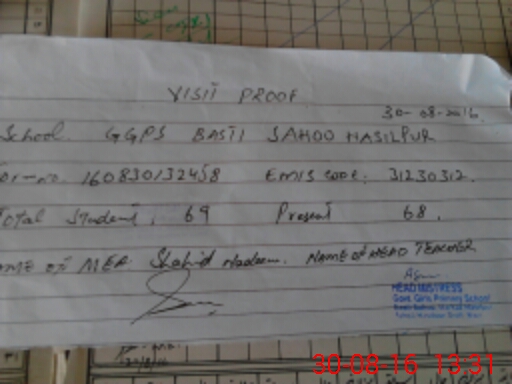 VISIT PROOF
30-08-2016
School. GGPS BASTI SAHOO HASILPUR
or-no. 160830132458 EMIS CODE: 31230312.
Total Student. 69 Present 68.
AME OF MEA Shahid Nadeem. NAME OF HEAD TEACHER
HEADMISTRESS
Govt. Girls Primary School
30-08-16 13:31